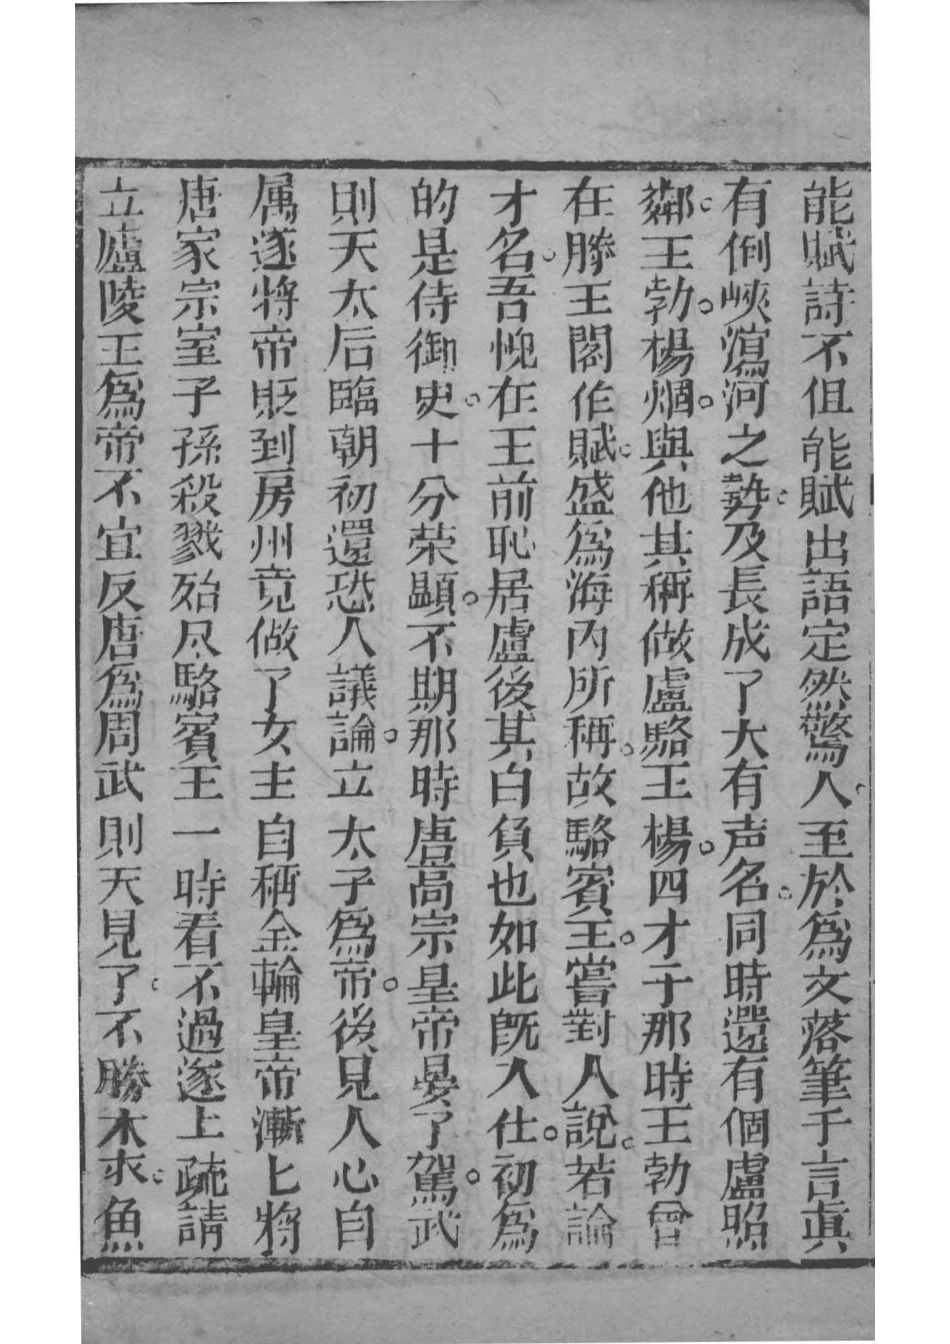 能賦詩不但能賦出語定然驚人至於為文落筆千言真
有倒峽瀉河之勢及長成了大有声名同時還有個盧照
鄰王勃楊烱與他其稱做盧駱王楊四才子那時王勃曾
在滕王閣作賦盛為海內所稱故駱賓王嘗對人說若論
才名吾愧在王前恥居盧後其自負也如此既入仕初為
的是侍御史十分荣顯不期那時唐高宗皇帝晏了駕武
則天太后臨朝初還恐人議論立太子為帝後見人心自
属遂將帝貶到房州竟做了女主自稱金輪皇帝漸匕將
唐家宗室子孫殺戮殆尽駱賓王一時看不過遂上疏請
立廬陵王為帝不宜反唐為周武則天見了不勝木求魚